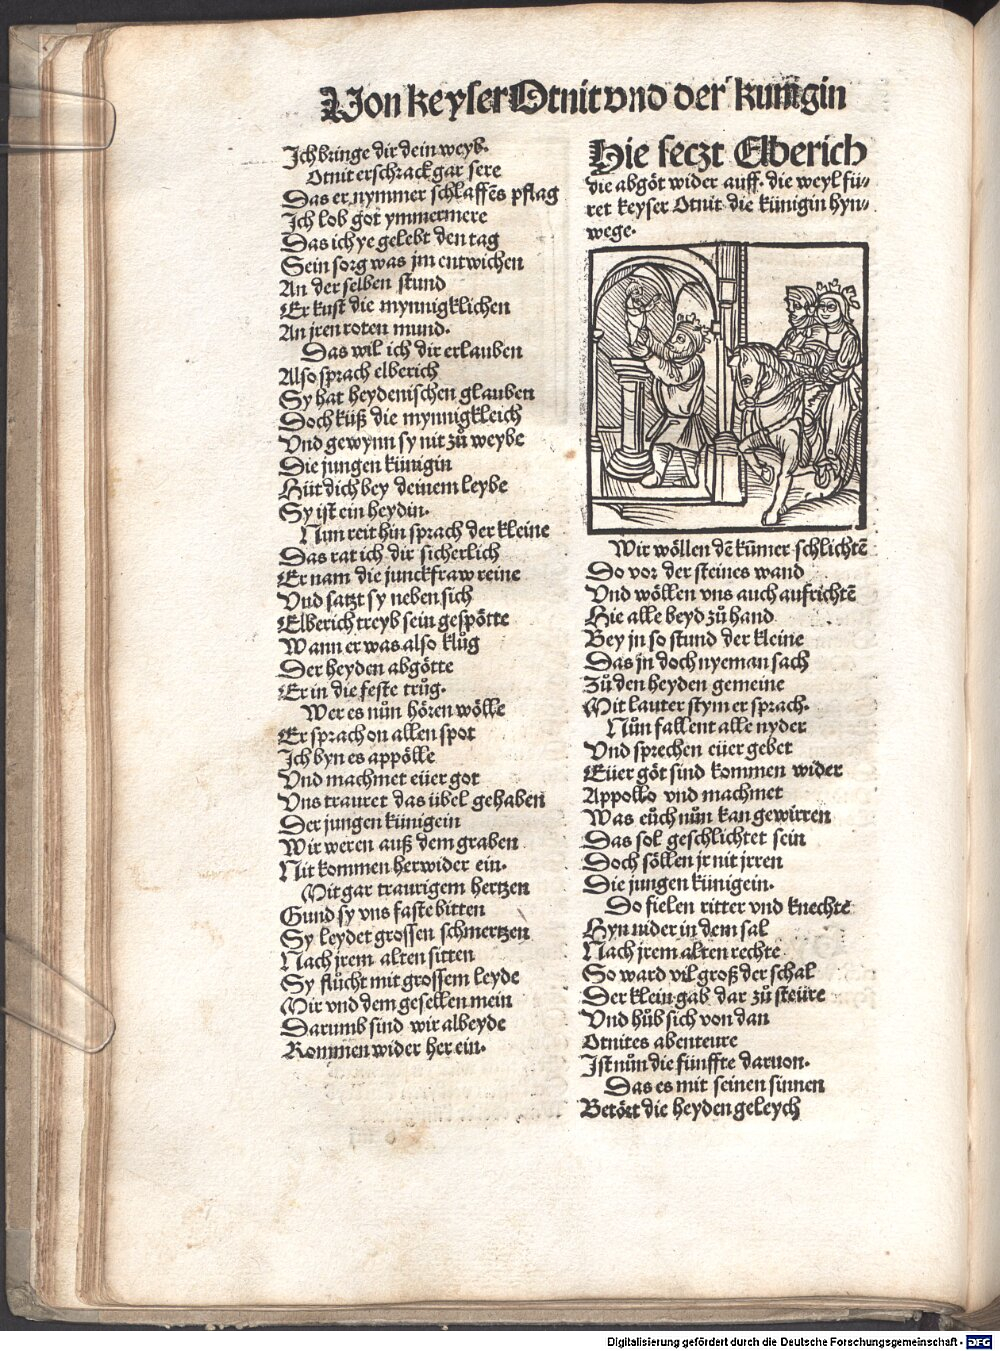 Von keyser Otnit vnd der künigin
Ich bringe dir dein weyb.
Otnit erschrack gar sere
Das er nymmer schlaffēs pflag
Ich lob got ymmermere
Das ich ye gelebt den tag
Sein sorg was jm entwichen
An der selben stund
Er kust die mynnigklichen
An jren roten mund.
Das wil ich dir erlauben
Also sprach elberich
Sy hat heydenischen glauben
Doch küß die mynnigkleich
Vnd gewynn sy nit zů weybe
Die jungen künigin
Hüt dich bey deinem leybe
Sy ist ein heydin.
Nun reit hin sprach der kleine
Das rat ich dir sicherlich
Er nam die junckfraw reine
Vnd satzt sy neben sich
Elberich treyb sein gespötte
Wann er was also klůg
Der heyden abgötte
Er in die feste trůg.
Wer es nůn hören wölle
Er sprach on allen spot
Ich byn es appölle
Vnd machmet eüer got
Vns trauret das übel gehaben
Der jungen künigein
Wir weren auß dem graben
Nit kommen her wider ein.
Mit gar traurigem hertzen
Gund sy vns faste bitten
Sy leydet grossen schmertzen
Nach jrem alten sitten
Sy flůcht mit grossem leyde
Mir vnd dem gesellen mein
Darumb sind wir albeyde
Kommen wider her ein.
Hie seczt Elberich
die abgöt wider auff. die weyl fü⸗
ret keyser Otnit die künigin hyn⸗
wege.
Wir wöllen dē kūmer schlichtē
Do vor der steines wand
Vnd wöllen vns auch aufrichtē
Hie alle beyd zů hand
Bey jn so stund der kleine
Das jn doch nyeman sach
Zů den heyden gemeine
Mit lauter stym er sprach.
Nůn fallent alle nyder
Vnd sprechen eüer gebet
Eüer göt sind kommen wider
Appollo vnd machmet
Was eüch nůn kan gewirren
Das sol geschlichtet sein
Doch söllen jr nit jrren
Die jungen künigein.
Do fielen ritter vnd knechte
Hyn nider in dem sal
Nach jrem alten rechte
So ward vil groß der schal
Der klein gab dar zů steüre
Vnd hůb sich von dan
Otnites abenteure
Ist nůn die fünffte daruon.
Das es mit seinen sinnen
Betört die heyden geleych
Digitalisierung gefördert durch die Deutsche Forschungsgemeinschaft - DFG